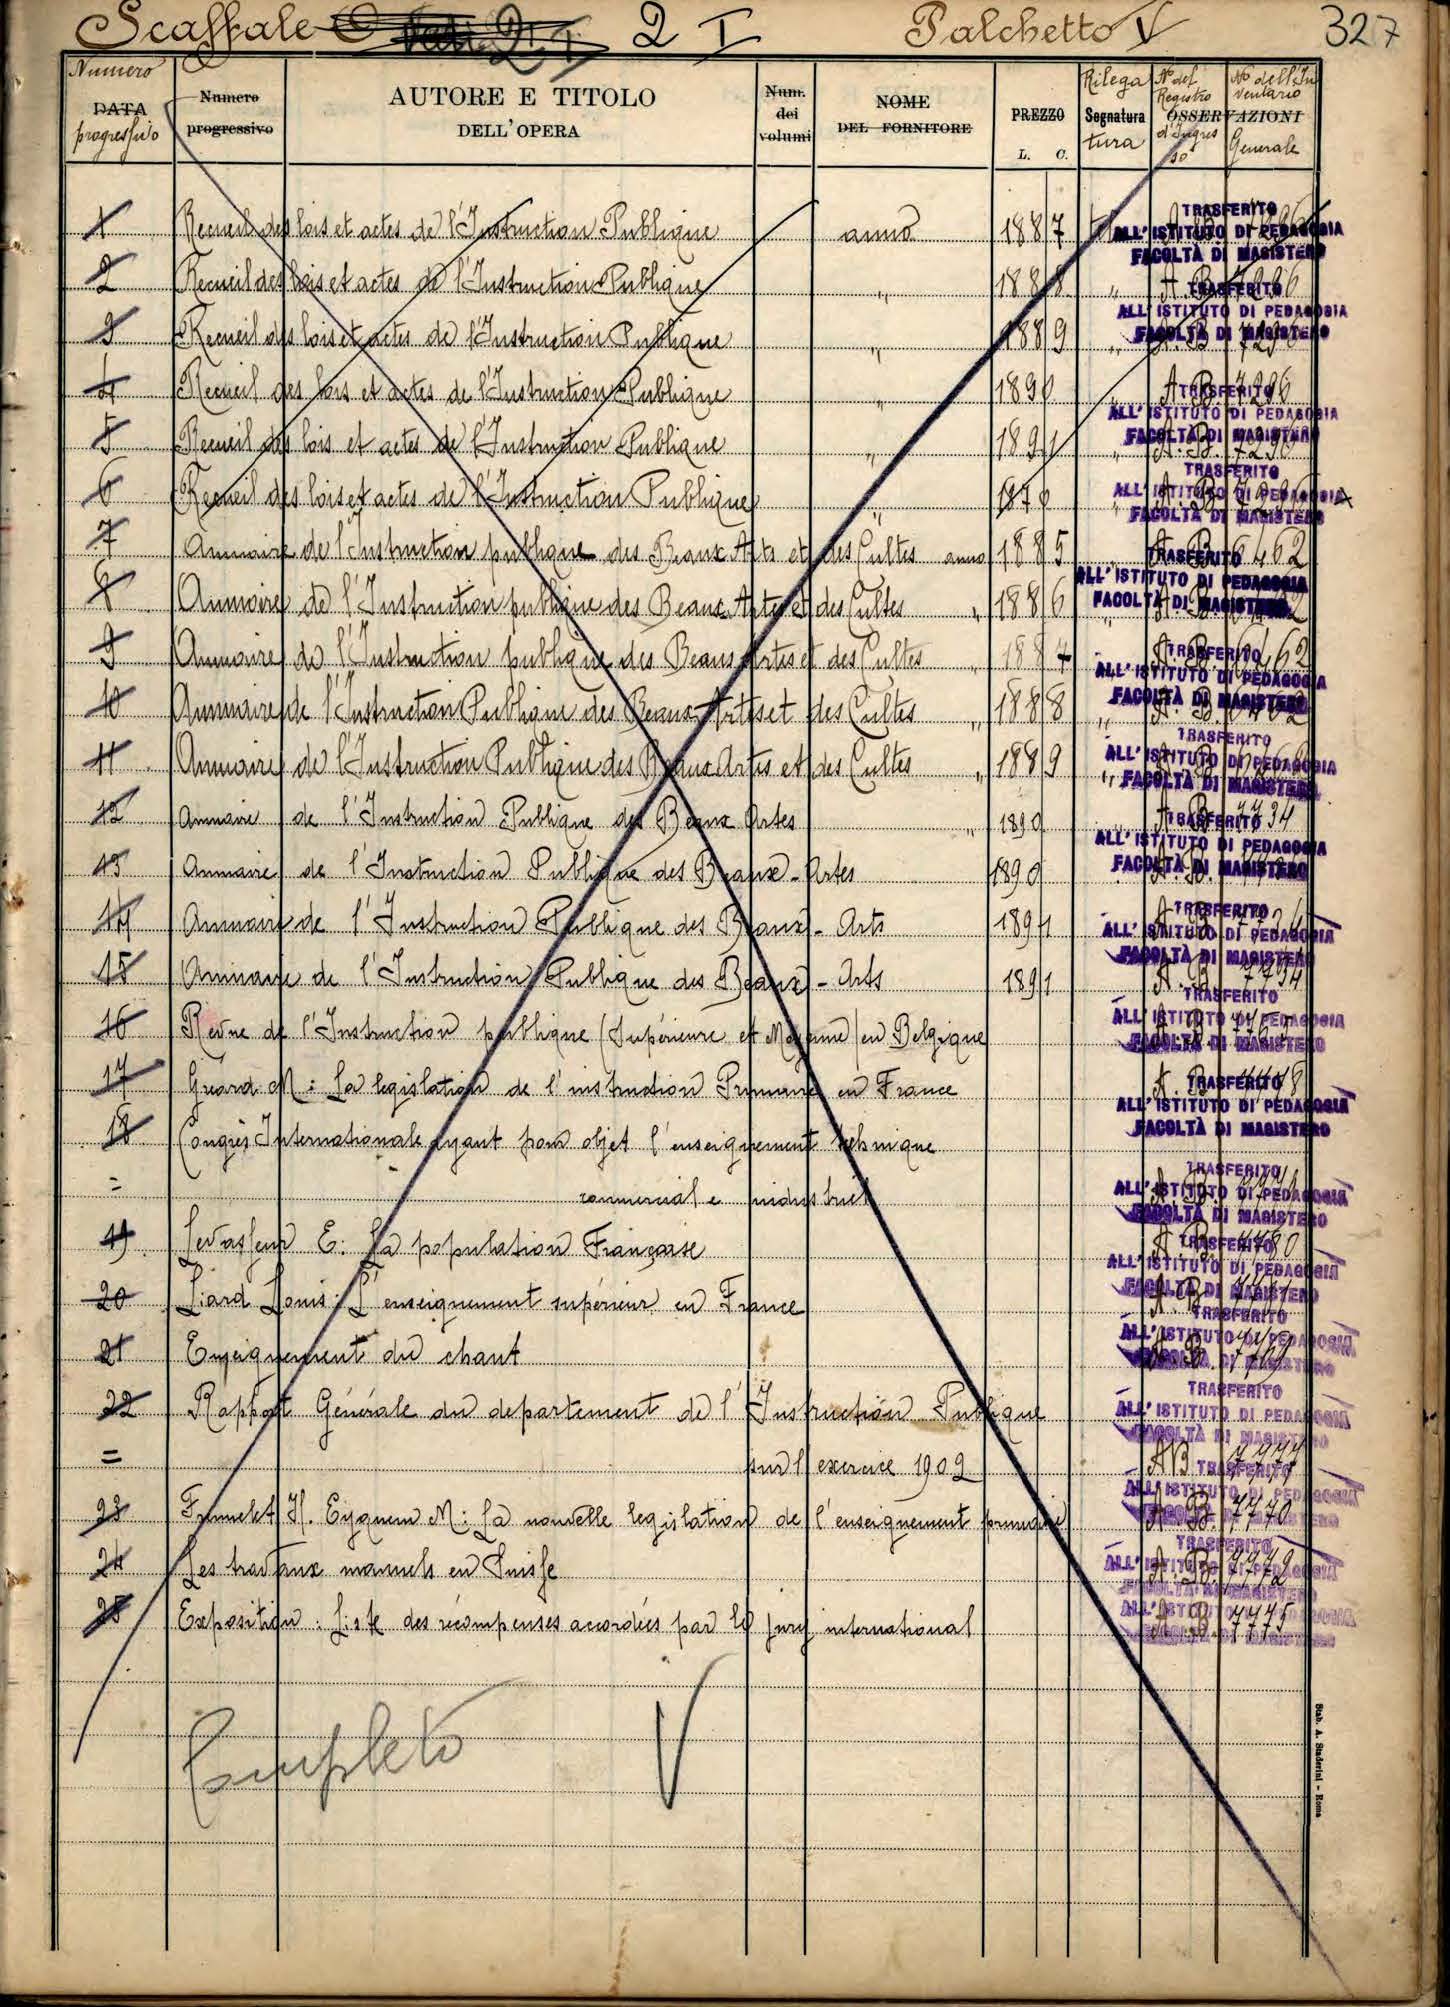 Scaffale 2 I Palchetto V 327
Numero DATA progressivo Numero progressivo AUTORE E TITOLO DELL'OPERA Num. dei volumi NOME DEL FORNITORE PREZZO L. C. Rilega Segnatura tura OSSERVAZIONI No del Registro d'Ingresso No dell'Inventario Generale
1 Recueil des lois et actes de l'Instruction Publique anno 1887
TRASFERITO
ALL'ISTITUTO DI PEDAGOGIA
FACOLTÀ DI MAGISTERO
2 Recueil des lois et actes de l'Instruction Publique " 1888 " A. B. 7296
TRASFERITO
ALL'ISTITUTO DI PEDAGOGIA
FACOLTÀ DI MAGISTERO
3 Recueil des lois et actes de l'Instruction Publique " 1889 " A. B. 7296
4 Recueil des lois et actes de l'Instruction Publique " 1890 " A. B. 7296
TRASFERITO
ALL'ISTITUTO DI PEDAGOGIA
FACOLTÀ DI MAGISTERO
5 Recueil des lois et actes de l'Instruction Publique " 1891 " A. B. 7296
TRASFERITO
ALL'ISTITUTO DI PEDAGOGIA
FACOLTÀ DI MAGISTERO
6 Recueil des lois et actes de l'Instruction Publique " 1870 " A. B. 7296
7 Annuaire de l'Instruction publique des Beaux Arts et des Cultes anno 1885 A. B. 6462
TRASFERITO
ALL'ISTITUTO DI PEDAGOGIA
FACOLTÀ DI MAGISTERO
8 Annuaire de l'Instruction publique des Beaux Artes et des Cultes " 1886 "
9 Annuaire de l'Instruction publique des Beaux Artes et des Cultes " 1887 " A. B. 6462
TRASFERITO
ALL'ISTITUTO DI PEDAGOGIA
FACOLTÀ DI MAGISTERO
10 Annuaire de l'Instruction Publique des Beaux-Artes et des Cultes " 1888 " A. B. 6462
TRASFERITO
ALL'ISTITUTO DI PEDAGOGIA
FACOLTÀ DI MAGISTERO
11 Annuaire de l'Instruction Publique des Beaux Artes et des Cultes " 1889 "
12 Annuaire de l'Instruction Publique des Beaux Artes " 1890 A. B. 7734
TRASFERITO
ALL'ISTITUTO DI PEDAGOGIA
FACOLTÀ DI MAGISTERO
13 Annuaire de l'Instruction Publique des Beaux-Artes 1890 A. B.
14 Annuaire de l'Instruction Publique des Beaux-Arts 1891 A. B. 7734
TRASFERITO
ALL'ISTITUTO DI PEDAGOGIA
FACOLTÀ DI MAGISTERO
15 Annuaire de l'Instruction Publique des Beaux-Arts 1891 A. B. 7734
TRASFERITO
ALL'ISTITUTO DI PEDAGOGIA
FACOLTÀ DI MAGISTERO
16 Revue de l'Instruction publique (Supérieure et Moyenne) en Belgique
17 Gréard M: La legislation de l'instruction Primaire en France
TRASFERITO
ALL'ISTITUTO DI PEDAGOGIA
FACOLTÀ DI MAGISTERO
18 Congrès Internationale ayant pour objet l'enseignement tehnique
= commercial e industriel
TRASFERITO
ALL'ISTITUTO DI PEDAGOGIA
FACOLTÀ DI MAGISTERO
19 Levasseur E: La population Française A. B. 7780
TRASFERITO
ALL'ISTITUTO DI PEDAGOGIA
FACOLTÀ DI MAGISTERO
20 Liard Louis: L'enseignement supérieur en France A. B.
TRASFERITO
ALL'ISTITUTO DI PEDAGOGIA
FACOLTÀ DI MAGISTERO
21 Enseignement du chant A. B. 7769
22 Rapport Générale du departement de l'Instruction Publique
TRASFERITO
ALL'ISTITUTO DI PEDAGOGIA
FACOLTÀ DI MAGISTERO
= sur l'exercice 1902 A B
TRASFERITO
ALL'ISTITUTO DI PEDAGOGIA
FACOLTÀ DI MAGISTERO
23 H. Eyquem M: La nouvelle legislation de l'enseignement primaire A. B. 7770
24 Les travaux manuels en Suisse A. B. 7772
TRASFERITO
ALL'ISTITUTO DI PEDAGOGIA
FACOLTÀ DI MAGISTERO
25 Exposition: Liste des récompenses accordées par le jury international A. B. 7775
ALL'ISTITUTO DI PEDAGOGIA
FACOLTÀ DI MAGISTERO
Completo V
Stab. A. Staderini - Roma